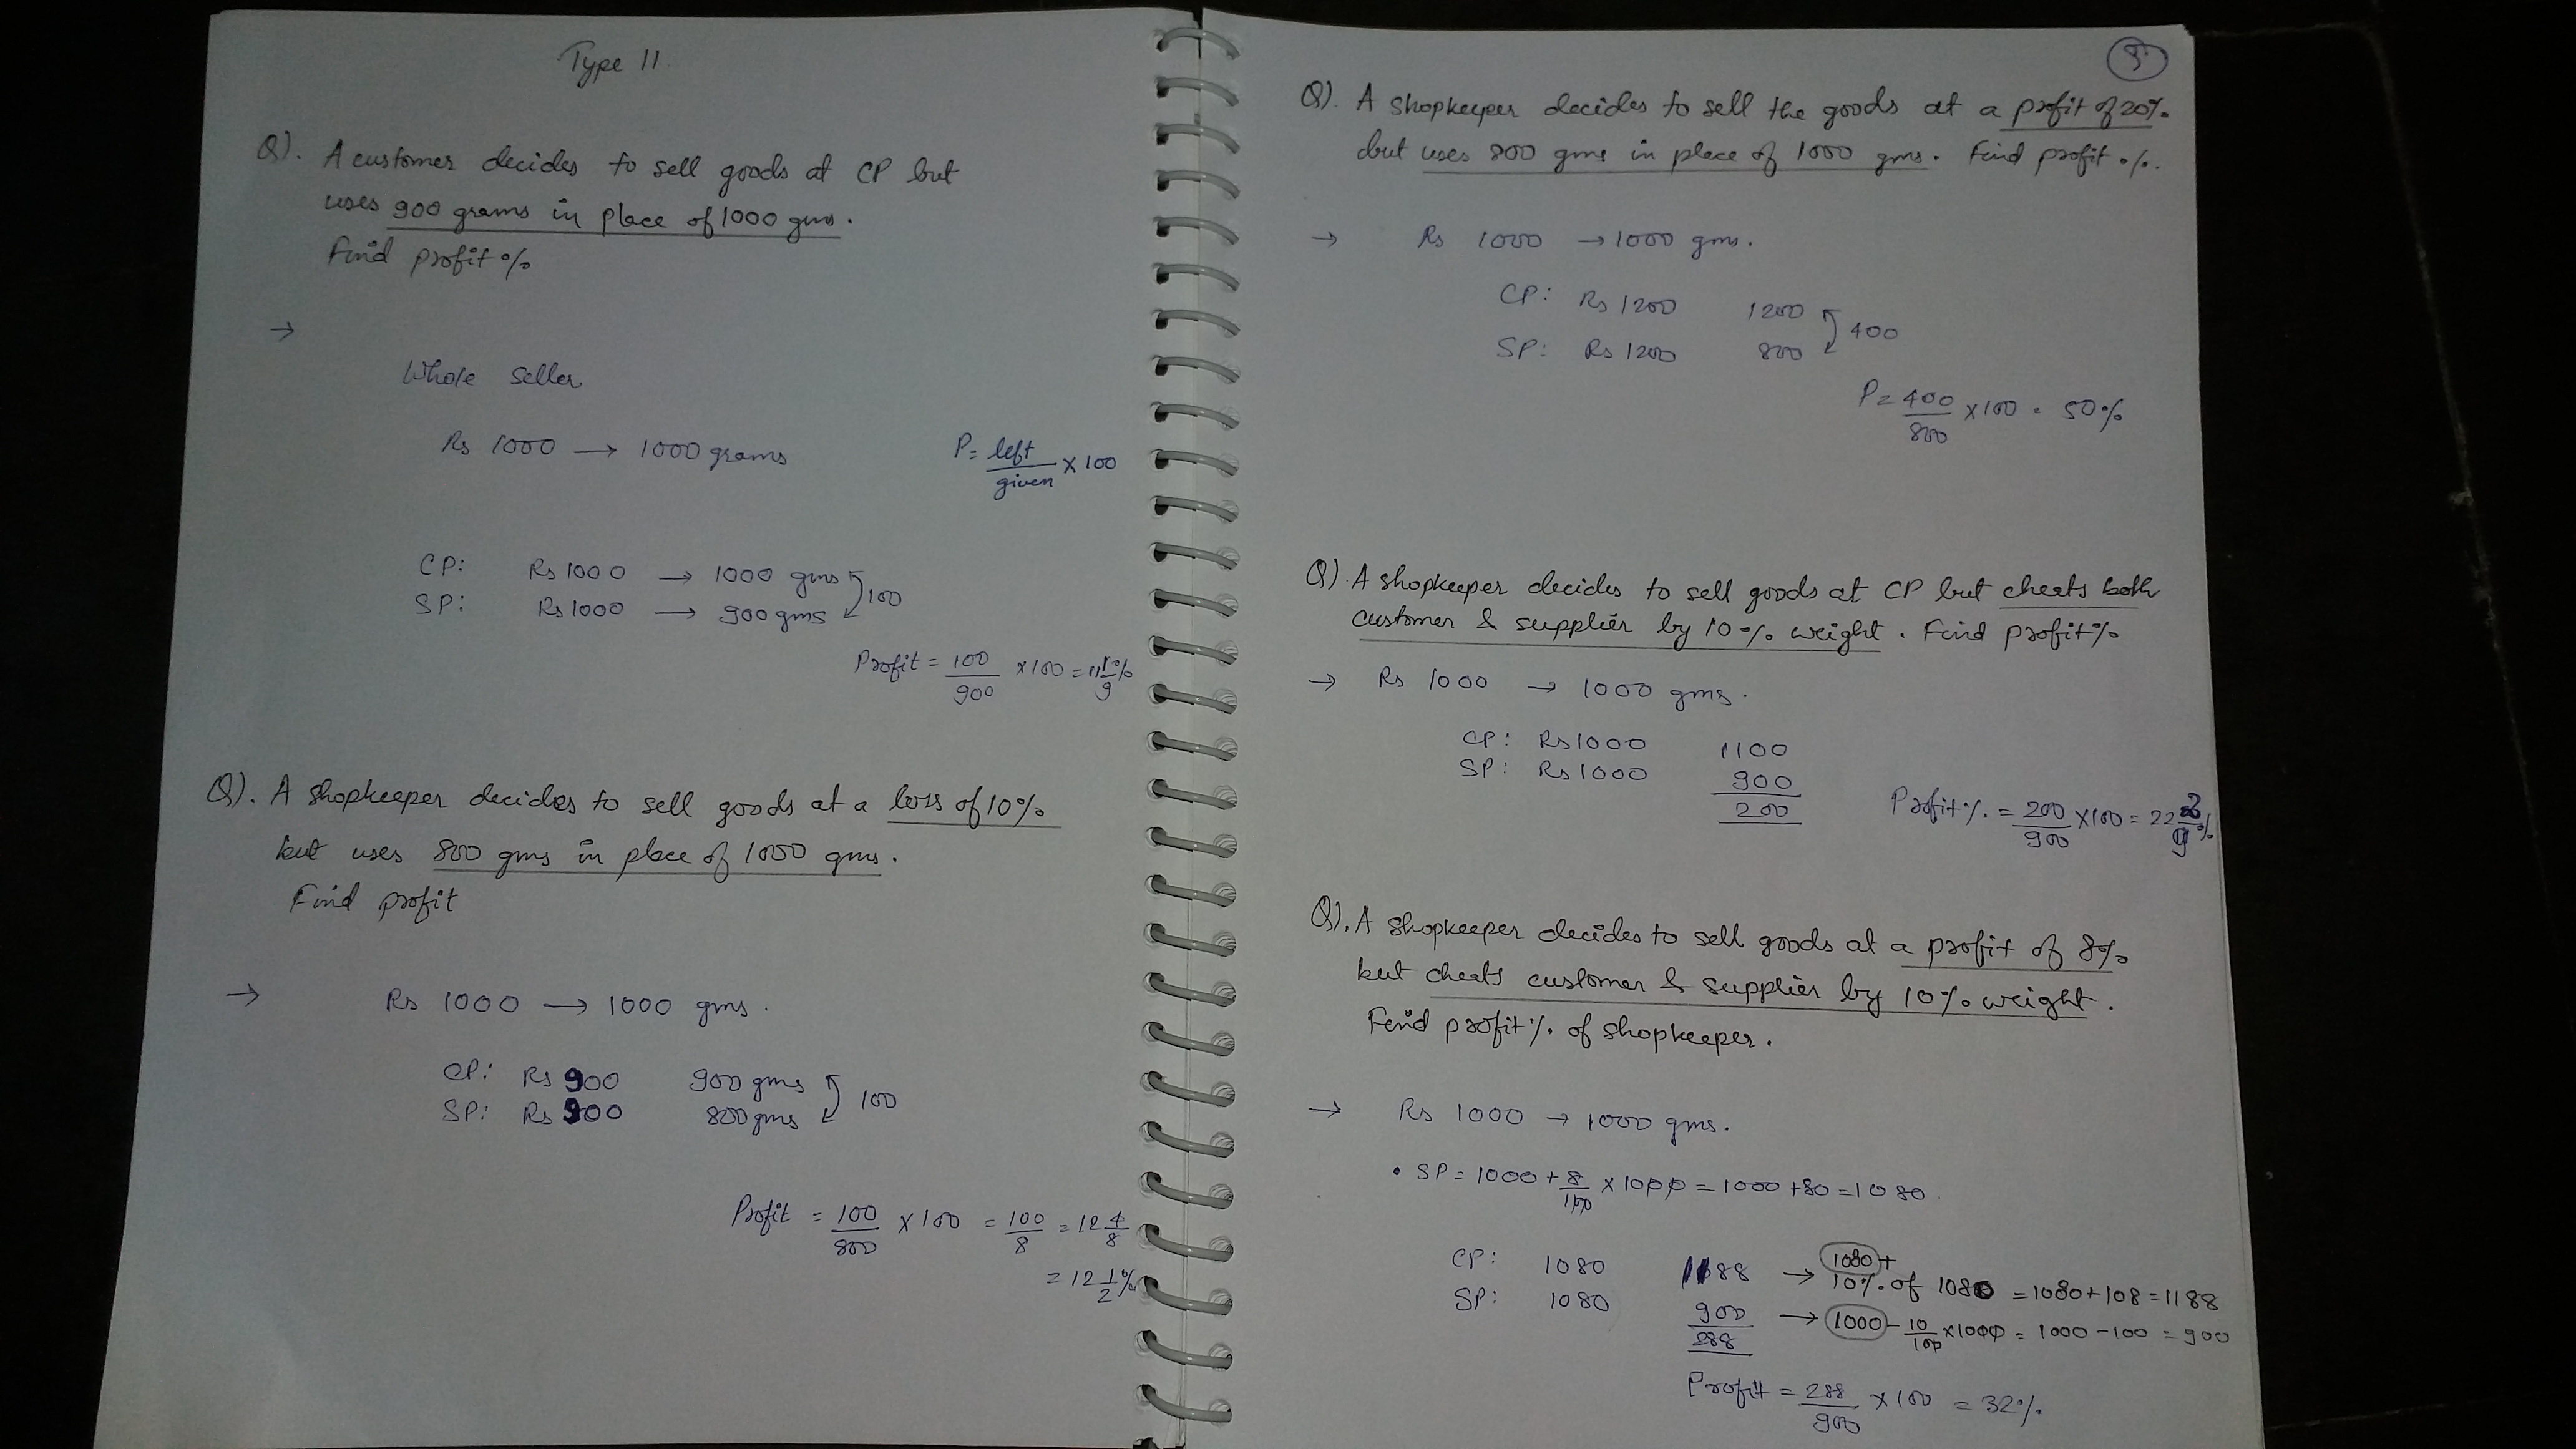 Type 11
Q). A customer decides to sell goods at CP but
uses 900 grams in place of 1000 gms.
Find profit %
→
Whole seller
Rs 1000 → 1000 grams
P= left/given × 100
CP: Rs 1000 → 1000 gms
100
SP: Rs 1000 → 900 gms
Profit = 100/900 × 100 = 11 1/9 %
Q). A shopkeeper decides to sell goods at a loss of 10%
but uses 800 gms in place of 1000 gms.
Find profit
→ Rs 1000 → 1000 gms.
CP: Rs 900 900 gms
100
SP: Rs 900 800 gms
Profit = 100/800 × 100 = 100/8 = 12 4/8
= 12 1/2 %
5
Q). A shopkeeper decides to sell the goods at a profit of 20%
but uses 800 gms in place of 1000 gms. Find profit %.
→ Rs 1000 → 1000 gms.
CP: Rs 1200 1200
400
SP: Rs 1200 800
P = 400/800 × 100 = 50%
Q) A shopkeeper decides to sell goods at CP but cheats both
customer & supplier by 10% weight. Find profit%
→ Rs 1000 → 1000 gms.
CP: Rs 1000 1100
SP: Rs 1000 900
200
Profit % = 200/900 × 100 = 22 2/9 %
Q). A shopkeeper decides to sell goods at a profit of 8%
but cheats customer & supplier by 10% weight.
Find profit % of shopkeeper.
→ Rs 1000 → 1000 gms.
• SP = 1000 + 8/100 × 1000 = 1000 + 80 = 1080.
CP: 1080 1188 → 1080 +
10% of 1080 = 1080 + 108 = 1188
SP: 1080 900 → 1000 - 10/100 × 1000 = 1000 - 100 = 900
288
Profit = 288/900 × 100 = 32%